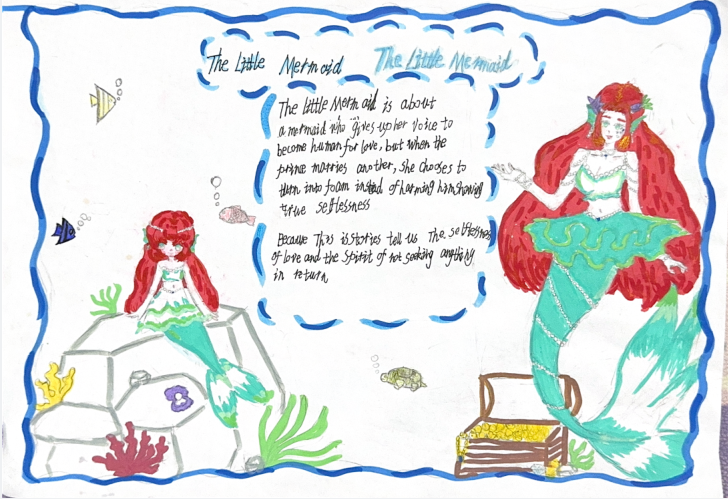 The Little Mermaid The Little Mermaid
The little Mermaid is about
a mermaid who gives up her voice to
become human for love, but when the
prince marries another, she chooses to
turn into foam instead of harming him showing
true selflessness
Because This is stories tell us The selflessness
of love and the spirit of not seeking anything
in return